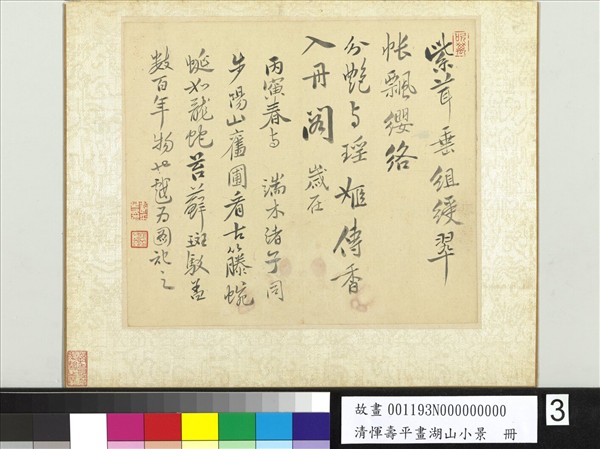 紫茸垂組綬翠
帐飄纓络
分艶与瑶姬傳香
入丹阁 歲在
丙寅春与 端木諸子同
步陽山舊圃看古籐蜿
蜒如龍蛇苔蘚斑駁盖
数百年物也戲为圖記之
故畫 001193N000000000
清惲壽平畫湖山小景 冊
3